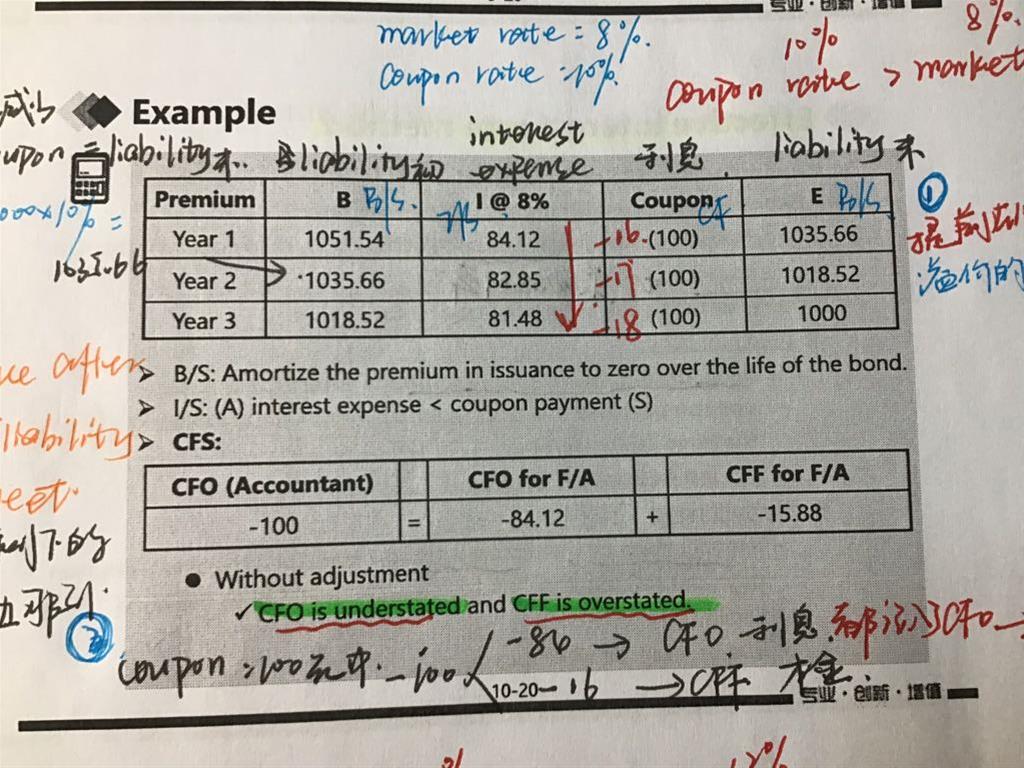 专业·创新·增值
market rate = 8%.
coupon rate = 10%.
10% 8%.
coupon rate > market
Example
interest
liability末.. liability初 expense 利息 liability末
Premium B B/S. I/S I @ 8% Coupon CF E B/S ①
Year 1 1051.54 84.12 -16. (100) 1035.66
Year 2 1035.66 82.85 -17 (100) 1018.52
Year 3 1018.52 81.48 -18 (100) 1000
溢价的
after
B/S: Amortize the premium in issuance to zero over the life of the bond.
I/S: (A) interest expense < coupon payment (S)
liability
CFS:
CFO (Accountant) CFO for F/A CFF for F/A
-100 = -84.12 + -15.88
Without adjustment
✓ CFO is understated and CFF is overstated.
②
coupon: 100元中. -100 -84 → CFO 利息 都计入了CFO →
-16 → CFF 本金.
10-20
专业·创新·增值